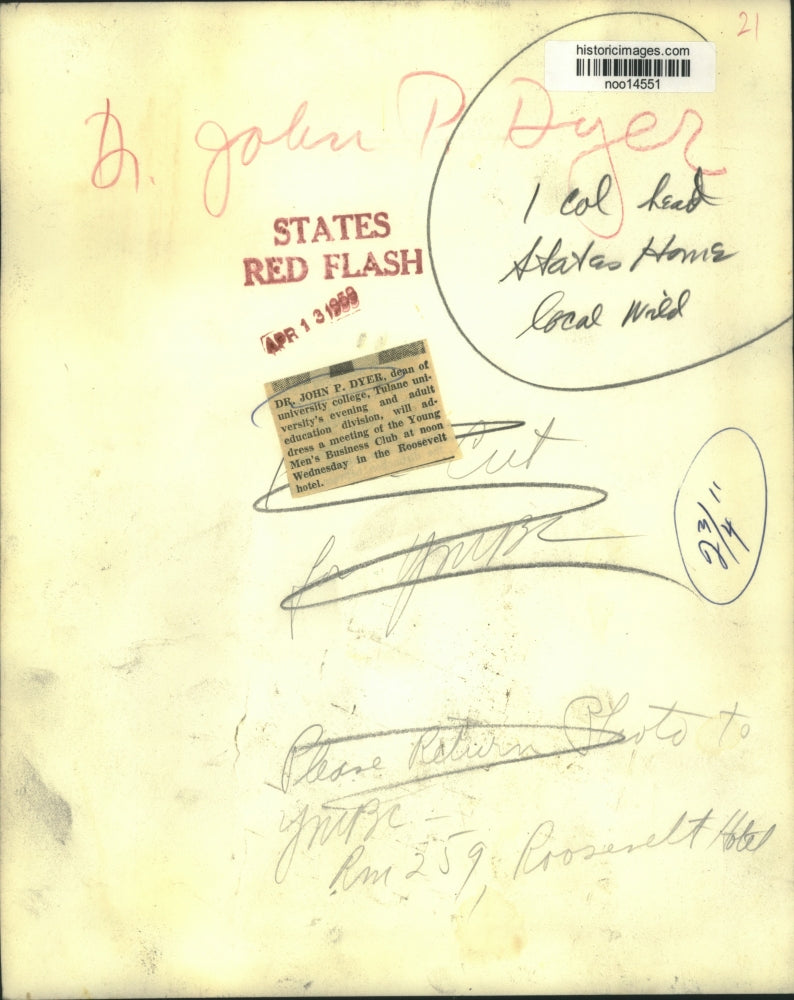 21
historicimages.com
noo14551
Dr. John P Dyer
1 col head
States Home
local Wild
STATES
RED FLASH
APR 13 1959
DR. JOHN P. DYER, dean of
university college, Tulane uni-
versity's evening and adult
education division, will ad-
dress a meeting of the Young
Men's Business Club at noon
Wednesday in the Roosevelt
hotel.
Cut
for YMBC
2 3/4"
Please Return Photo to
YMBC -
Rm 259, Roosevelt Hotel